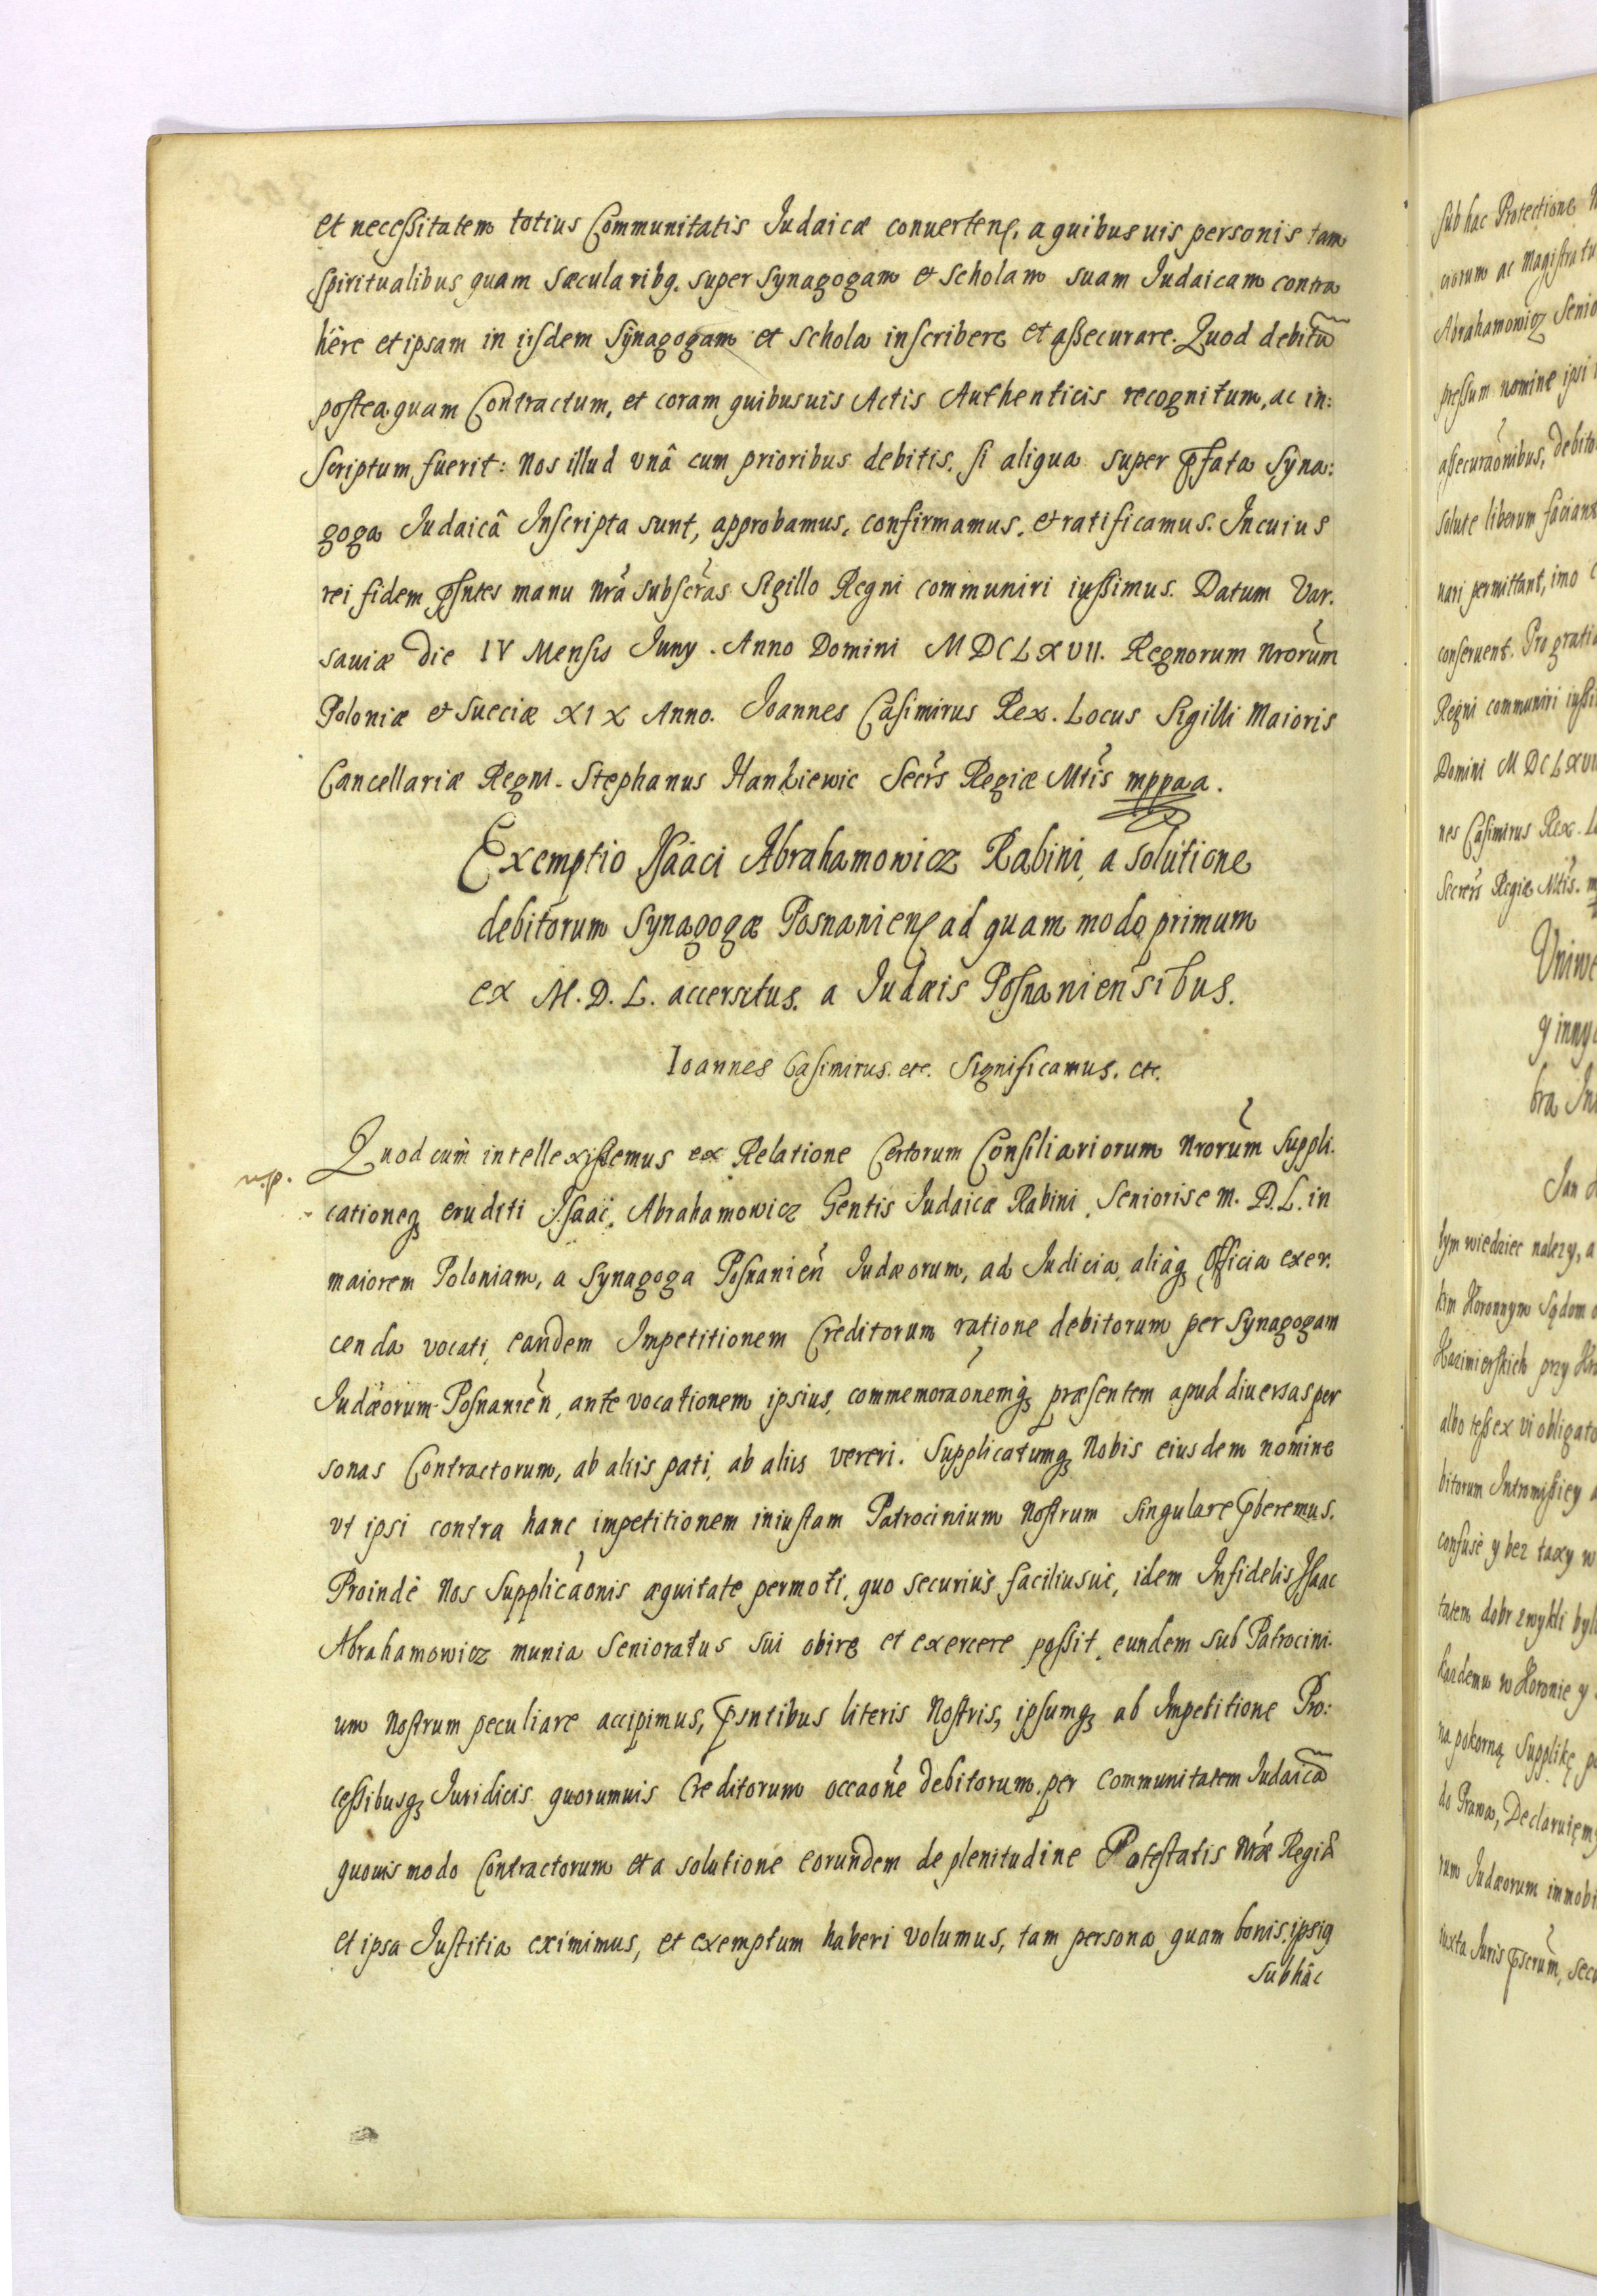 et necessitatem totius Communitatis Judaicæ conuerteñ, a quibusuis personis tam
spiritualibus quam sæcularibq. super Synagogam et Scholam suam Judaicam contra
here et ipsam in iisdem Synagogam et schola inscribere et assecurare. Quod debitũ
postea quam Contractum, et coram quibusuis Actis Authenticis recognitum, ac in:
scriptum fuerit: Nos illud vnâ cum prioribus debitis, si aliqua super p̄fata Syna:
goga Judaicâ Inscripta sunt, approbamus, confirmamus, et ratificamus. In cuius
rei fidem p̄ntes manu nrã subscras Sigillo Regni communiri iussimus. Datum Var.
sauiæ Die IV Mensis Juny. Anno Domini MDCLXVII. Regnorum Nrorum
Poloniæ et Sueciæ XIX Anno. Joannes Casimirus Rex. Locus Sigilli Maioris
Cancellariæ Regni. Stephanus Hankiewic Secrs Regiæ Mtis mppaa.
Exemptio Isaaci Abrahamowicz Rabini, a solutione
debitorum Synagogæ Posnanieñ ad quam modo primum
ex M. D. L. accersitus. a Judæis Posnaniensibus.
Ioannes Casimirus. etc. Significamus. etc.
n.p.
Quod cum intellexissemus ex Relatione Certorum Consiliariorum Nrorum Suppli.
cationeq eruditi Isaaci, Abrahamowicz Gentis Judaicæ Rabini, Senioris e M. D. L. in
maiorem Poloniam, a Synagoga Posnanień Judæorum, ad Judicia, aliaq Officia exer.
cenda vocati, eandem Impetitionem Creditorum ratione debitorum per Synagogam
Judæorum Posnanień, ante vocationem ipsius, commemoraonemq præsentem apud diuersas per
sonas Contractorum, ab aliis pati, ab aliis vereri. Supplicatumq Nobis eiusdem nomine
vt ipsi contra hanc impetitionem iniustam Patrocinium Nostrum singulare p̄beremus.
Proindè Nos Supplicaonis æquitate permoti, quo securius faciliusue, idem Infidelis Isaac
Abrahamowicz munia Senioratus sui obire et exercere possit, eundem sub Patrocini.
um Nostrum peculiare accipimus, p̄sntibus literis Nostris, ipsumq ab Impetitione Pro:
cessibusq Juridicis quorumuis Creditorum occaone Debitorum per Communitatem Judaicã
quouis modo Contractorum et a solutione eorundem de plenitudine Potestatis Nræ Regiæ
et ipsa Justitia eximimus, et exemptum haberi volumus, tam persona quam bonis, ipsiq
sub hâc
sub hac Protectione
ciorum ac Magistratu
Abrahamowicz Senio
pressum nomine ipsi
assecuraonibus, Debito
solute liberum faciant
nari permittant, imo
conseruent. Pro gratia
Regni communiri iussi
Domini MDCLXVII
nes Casimirus Rex.
Secrers Regiæ Mtis.
Uniwe
y innyc
bra
Jan
tym wiedziec nalezy, a
kim Koronnym Sądom
Kazimierskich przy
albo tesz ex vi obligato
bitorum Intromissiey
confuse y bez taxy w
tatem dobr zwykli byli
kazdemu w Koronie y
na pokorną Supplikę
do Prawa, Declaruięmy
rum Judæorum immobi
iuxta Juris p̄scrum, secu